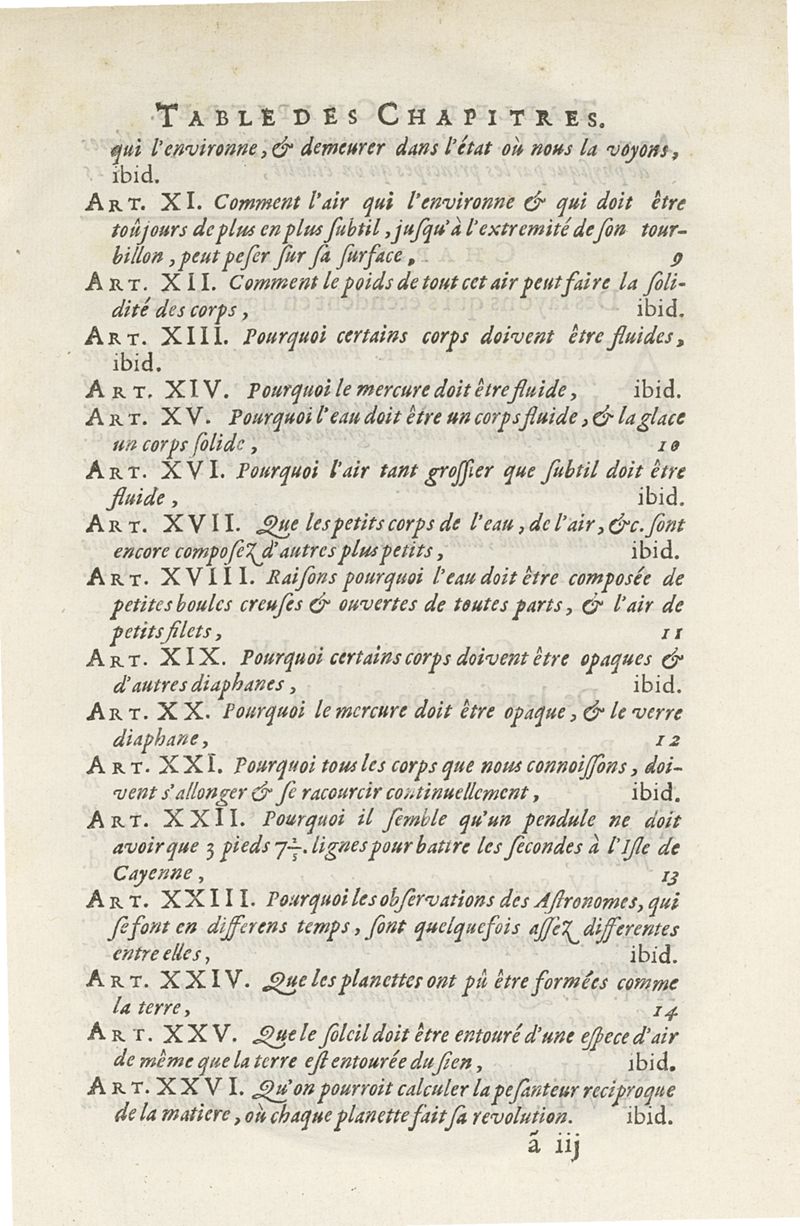 TABLE DES CHAPITRES.
qui l'environne, & demeurer dans l'état où nous la voyons,
ibid.
ART. XI. Comment l'air qui l'environne & qui doit être
toûjours de plus en plus ſubtil, juſqu'à l'extremité de ſon tour-
billon, peut peſer ſur ſa ſurface. 9
ART. XII. Comment le poids de tout cet air peut faire la ſoli-
dité des corps, ibid.
ART. XIII. Pourquoi certains corps doivent être fluides,
ibid.
ART. XIV. Pourquoi le mercure doit être fluide, ibid.
ART. XV. Pourquoi l'eau doit être un corps fluide, & la glace
un corps ſolide, 10
ART. XVI. Pourquoi l'air tant groſſier que ſubtil doit être
fluide, ibid.
ART. XVII. Que les petits corps de l'eau, de l'air, &c. ſont
encore compoſez d'autres plus petits, ibid.
ART. XVIII. Raiſons pourquoi l'eau doit être composée de
petites boules creuſes & ouvertes de toutes parts, & l'air de
petits filets, 11
ART. XIX. Pourquoi certains corps doivent être opaques &
d'autres diaphanes, ibid.
ART. XX. Pourquoi le mercure doit être opaque, & le verre
diaphane, 12
ART. XXI. Pourquoi tous les corps que nous connoiſſons, doi-
vent s'allonger & ſe racourcir continuellement, ibid.
ART. XXII. Pourquoi il ſemble qu'un pendule ne doit
avoir que 3 pieds 7 2/5. lignes pour battre les ſecondes à l'Iſle de
Cayenne, 13
ART. XXIII. Pourquoi les obſervations des Aſtronomes, qui
ſe font en differens temps, ſont quelquefois aſſez differentes
entre elles, ibid.
ART. XXIV. Que les planettes ont pû être formées comme
la terre, 14
ART. XXV. Que le ſoleil doit être entouré d'une eſpece d'air
de même que la terre eſt entourée du ſien, ibid.
ART. XXVI. Qu'on pourroit calculer la peſanteur reciproque
de la matiere, où chaque planette fait ſa revolution. ibid.
ã iij